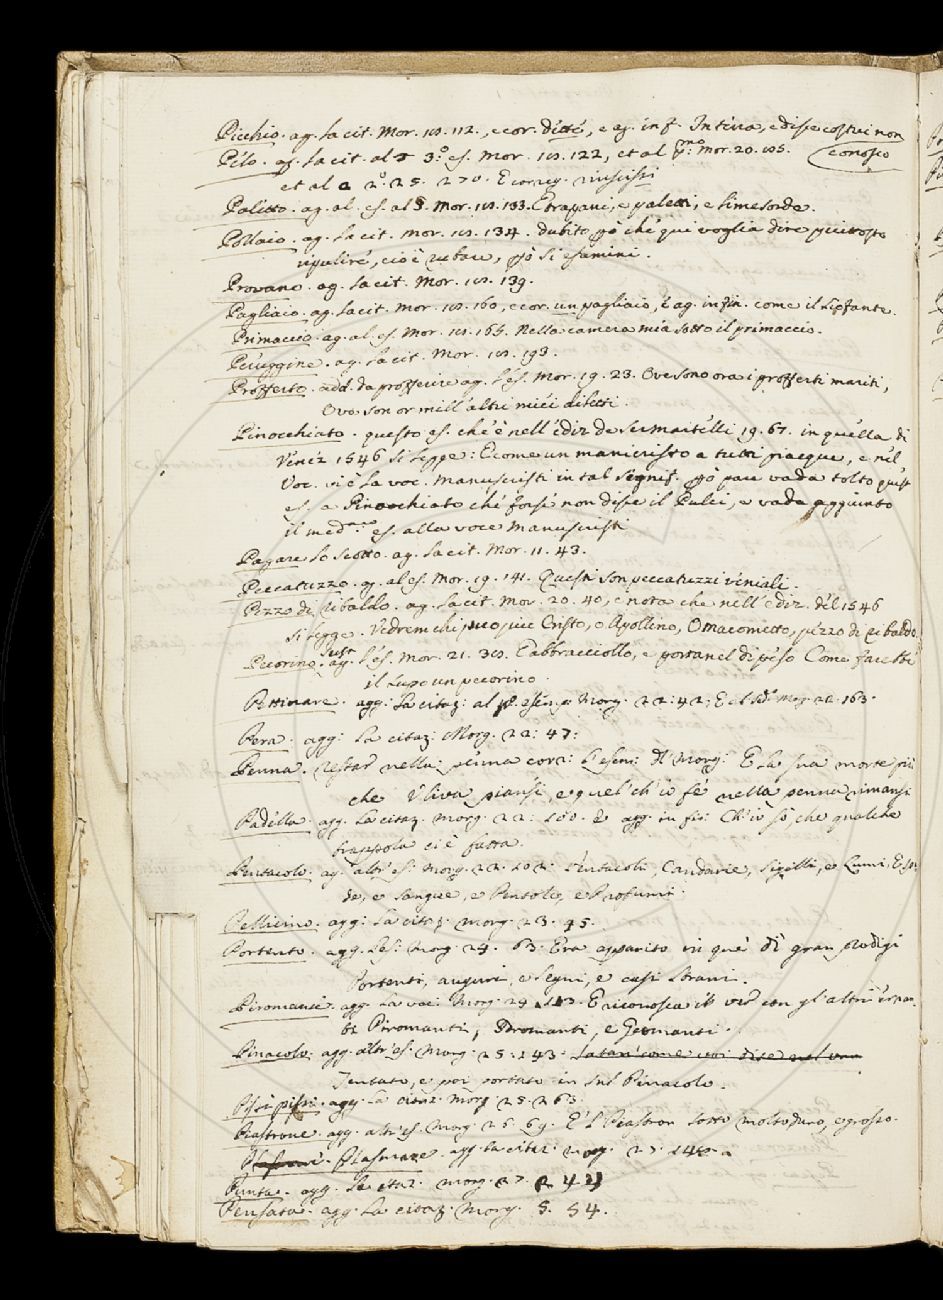 Picchio. ag. la cit. Mor. 112., e cor. ditté, e ag. in f. Intina, e disse costui non
Pelo. ag. la cit. al 3.º es. Mor. 122, et al pmo: Mor. 20. 105. conosco
et al 2.º 25. 270. E correg.
Paletto. ag. al. es. al §. Mor. 133. E trapani, e paletti, e lime sorde.
Pollaio. ag. la cit. Mor. 134. dubito pò che qui voglia dire piuttosto
ripulire, cioè rubare, pò si esamini.
Provano. ag. la cit. Mor. 139.
Pagliaio. ag. la cit. Mor. 160, e cor. un pagliaio, e ag. in fin. come il liofante.
Primaccio. ag. al. es. Mor. 165. Nella camera mia sotto il primaccio.
Peluggine. ag. la cit. Mor. 193.
Profferto. add. da profferire ag. l'es. Mor. 19. 23. Ove sono ora i profferti mariti,
Ove son or mill'altri miei diletti.
Pinocchiato. questo es. che è nell'ediz de Sermartelli 19. 67. in quella di
Venez 1546 si legge: E come un manicristo a tutti piacque, e nel
Voc. vi è la voc. Manuscristi in tal signif. pò pare vada tolto quest
es. a Pinocchiato che forse non disse il Pulci, e vada aggiunto
il medmo es. alla voce Manuscristi
Pagare lo Scotto. ag. la cit. Mor. 11. 43.
Peccatuzzo. ag. al es. Mor. 19. 141. Questi son peccatuzzi veniali.
Pezzo di Ribaldo. ag. la cit. Mor. 20. 40, e nota che nell'ediz. del 1546
si legge. Vedrem chi può più Cristo, o Apollino, O Macometto, pezzo di ribaldo
Pecorino. sust ag. l'es. Mor. 21. 30. E abbracciollo, e portanel di peso Come farebbe
il Lupo un pecorino.
Pettinare. agg: la citaz: al p. esem. Morg. 22: 42; E al Mor. 22. 163.
Pera. agg: la citaz: Morg. 22: 47:
Penna. restar nella penna corr: l'esem: d'l Morg: E la sua morte più
che Uliva piansi, e quel ch'io fé nella penna rimansi
Padella. agg. la citaz. Morg. 22: 100. e agg in fi: Ch'io so, che qualche
frappola ci è fatta.
Pentacolo. ag. altr'es: Morg. 22. 102: Pentacoli, Candarie, Sigilli, e Lumi, E spa
de, e sangue, e Pentole, e Profumi.
Pellicino. agg: la citaz. Morg. 23. 45.
Portento. agg. l'es: Morg 24. 63. Era apparito in que' dì gran Prodigi
Portenti, auguri, e segni, e casi strani.
Piromanti. agg. la voc: Morg. 24 113. E riconosca il ver con gl'altri erran
ti Piromanti, Idromanti, e Geomanti.
Pinacolo. agg. altr'es. Morg: 25. 143. Satan come voi dite nel
Tentato, e poi portato in sul Pinacolo.
Pissi pissi. agg. la citaz. Morg 25. 263.
Piastrone. agg. altr'es. Morg. 26. 69. E 'l Piastron sotto molto duro, e grosso.
Plasmare. agg. la citaz. Morg. 27. 140.
Punta. agg. la citaz. Morg. 27.
Pensata. agg. la citaz. Morg. 5. 54.